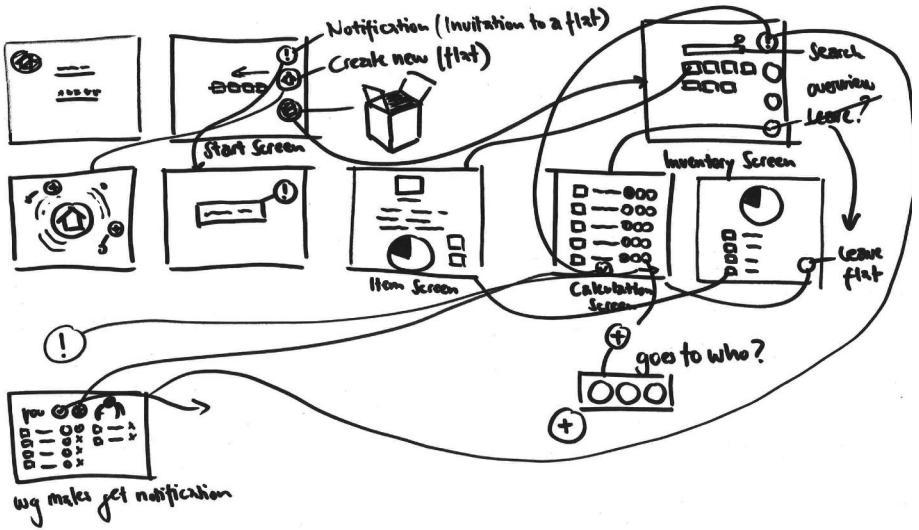 Notification (Invitation to a flat)
Create new (flat)
Start Screen
Search
overview
Leave?
Inventory Screen
Item Screen
Calculation
Screen
Leave
flat
goes to who?
you
wg mates get notification